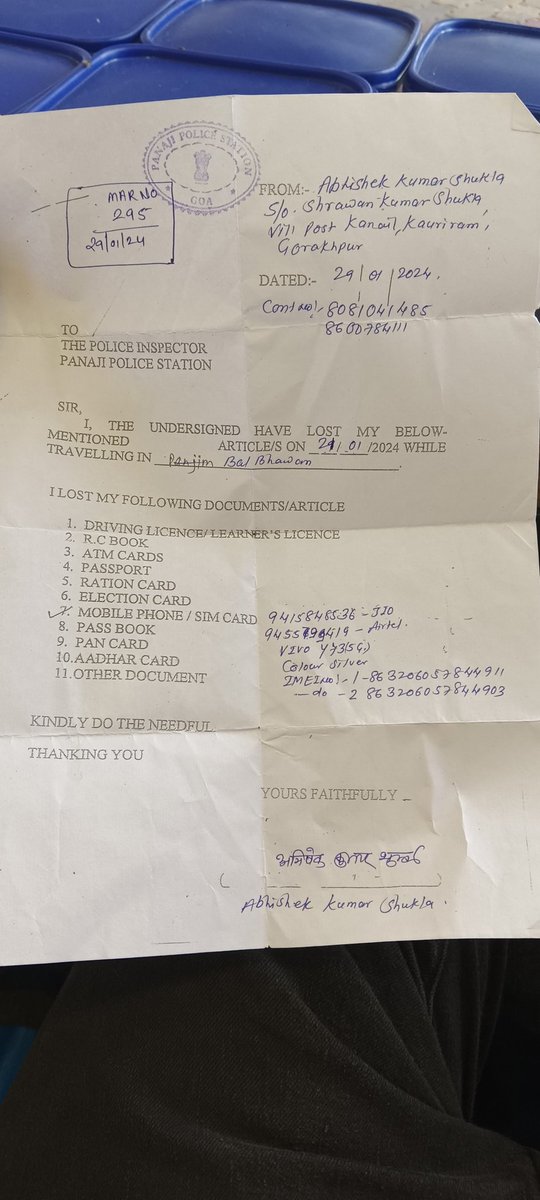 PANAJI POLICE STATION
GOA
MAR NO
295
29/01/24
FROM:- Abhishek Kumar Shukla
S/o. Shrawan Kumar Shukla
Vill Post Kanail, Kauriram,
Gorakhpur
DATED:- 29/01/2024
8081041485
8600784111
TO
THE POLICE INSPECTOR
PANAJI POLICE STATION
SIR,
I, THE UNDERSIGNED HAVE LOST MY BELOW-
MENTIONED ARTICLE/S ON /01/2024 WHILE
TRAVELLING IN Panjim Bal Bhawan
I LOST MY FOLLOWING DOCUMENTS/ARTICLE
1. DRIVING LICENCE/ LEARNER'S LICENCE
2. R.C BOOK
3. ATM CARDS
4. PASSPORT
5. RATION CARD
6. ELECTION CARD
7. MOBILE PHONE / SIM CARD 9415848536 - JIO
8. PASS BOOK - Airtel.
9. PAN CARD VIVO Y73(5G)
10. AADHAR CARD Colour Silver
11. OTHER DOCUMENT IMEI No/- 1 - 863206057844911
- do - 2 863206057844903
KINDLY DO THE NEEDFUL.
THANKING YOU
YOURS FAITHFULLY
अभिषेक कुमार शुक्ला
Abhishek Kumar Shukla.